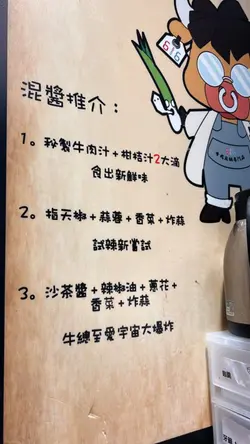 混醬推介：
1。秘製牛肉汁+柑桔汁2大滴
食出新鮮味
2。指天椒+蒜蓉+香菜+炸蒜
試辣新嘗試
3。沙茶醬+辣椒油+蔥花+
香菜+炸蒜
牛總至愛宇宙大爆炸
616